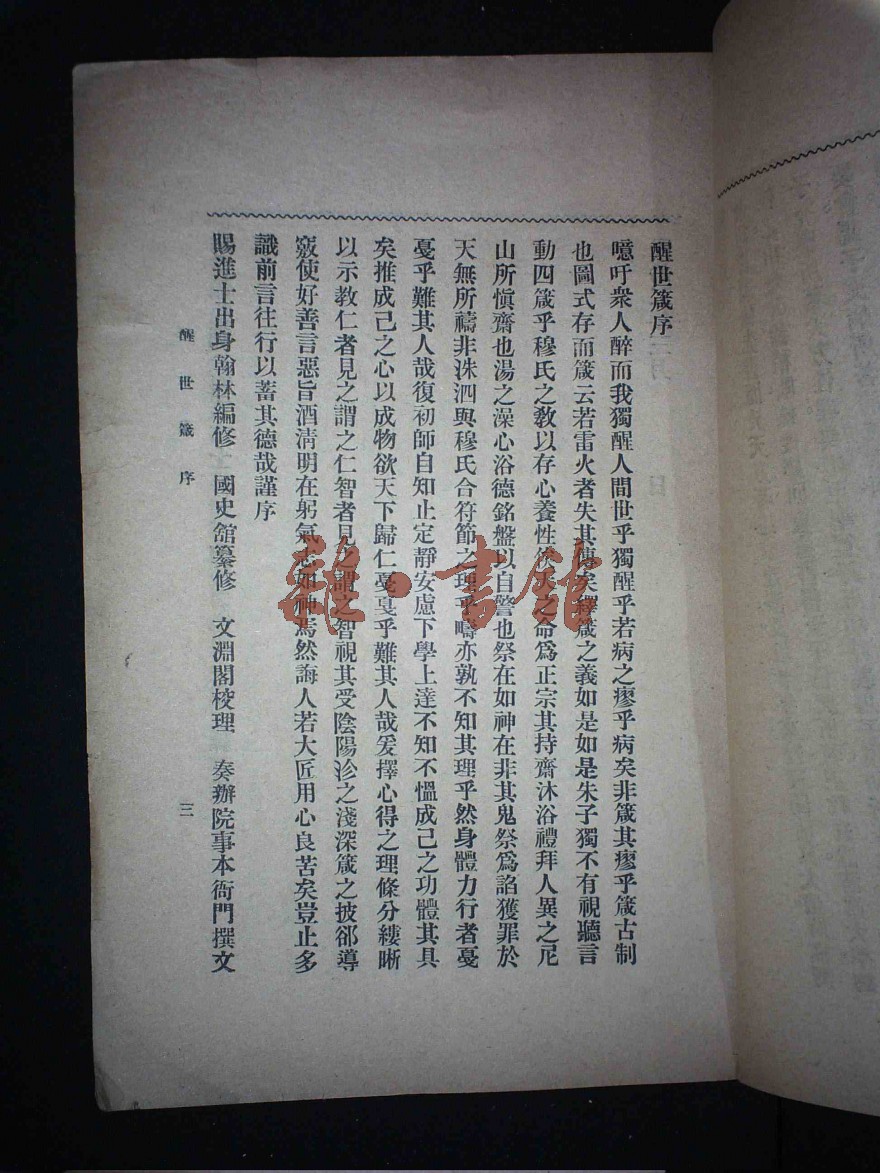 醒世箴序
噫吁衆人醉而我獨醒人間世乎獨醒乎若病之瘳乎病矣非箴其瘳乎箴古制
也圖式存而箴云若雷火者失其傳矣釋箴之義如是如是朱子獨不有視聽言
動四箴乎穆氏之敎以存心養性俟天之命爲正宗其持齋沐浴禮拜人異之尼
山所愼齋也湯之澡心浴德銘盤以自警也祭在如神在非其鬼祭爲諂獲罪於
天無所禱非洙泗與穆氏合符節之理乎疇亦孰不知其理乎然身體力行者戞
戞乎難其人哉復初師自知止定靜安慮下學上達不知不慍成己之功體其具
矣推成己之心以成物欲天下歸仁戞戞乎難其人哉爰擇心得之理條分縷晰
以示教仁者見之謂之仁智者見之謂之智視其受陰陽沴之淺深箴之披郤導
窾使好善言惡旨酒清明在躬氣志如神焉然誨人若大匠用心良苦矣豈止多
識前言往行以蓄其德哉謹序
賜進士出身翰林編修 國史館纂修 文淵閣校理 奏辦院事本衙門撰文
醒世箴序 三
雜·書館